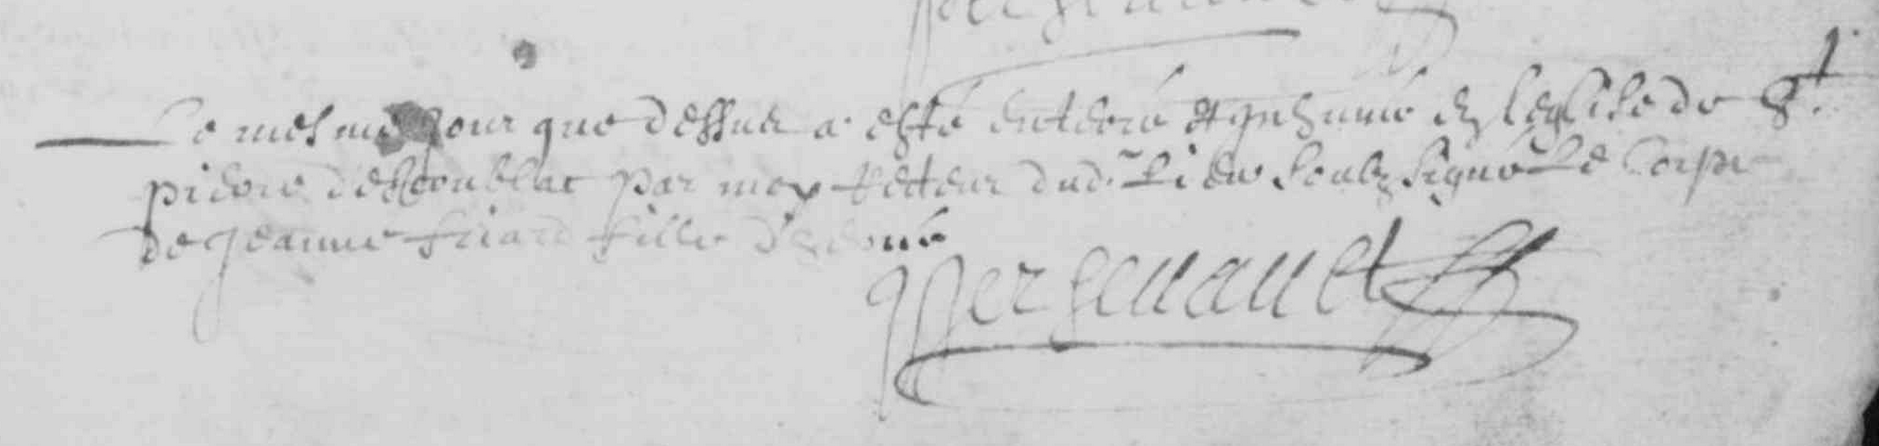 Le mesme jour que dessus a esté enterré et inhumé en l'eglise de St
pierre d'escoublac par moy recteur dud. lieu soubz signé le corps
de jeanne friard fille d'